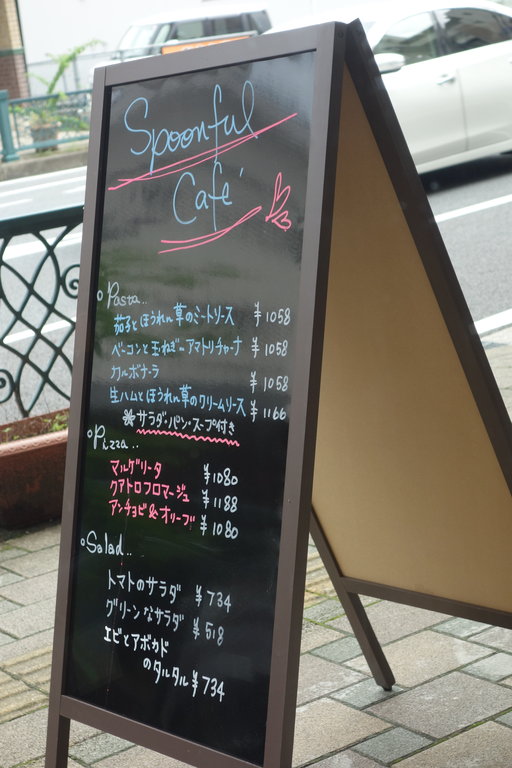 Spoonful
Café
Pasta..
茄子とほうれん草のミートソース ¥1058
ベーコンと玉ねぎのアマトリチャーナ ¥1058
カルボナーラ ¥1058
生ハムとほうれん草のクリームソース ¥1166
※サラダ・パン・スープ付き
Pizza..
マルゲリータ ¥1080
クアトロフロマージュ ¥1188
アンチョビ&オリーブ ¥1080
Salad..
トマトのサラダ ¥734
グリーンなサラダ ¥518
エビとアボカド
のタルタル ¥734